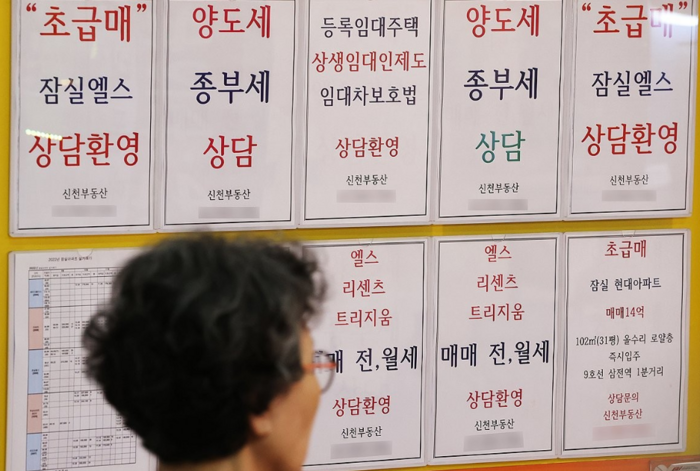 "초급매"
잠실엘스
상담환영
신천부동산
양도세
종부세
상담
신천부동산
등록임대주택
상생임대인제도
임대차보호법
상담환영
신천부동산
양도세
종부세
상담
신천부동산
"초급매"
잠실엘스
상담환영
신천부동산
엘스
리센츠
트리지움
매매 전,월세
상담환영
신천부동산
엘스
리센츠
트리지움
매매 전,월세
상담환영
신천부동산
초급매
잠실 현대아파트
매매14억
102㎡(31평) 올수리 로얄층
즉시입주
9호선 삼전역 1분거리
상담문의
신천부동산